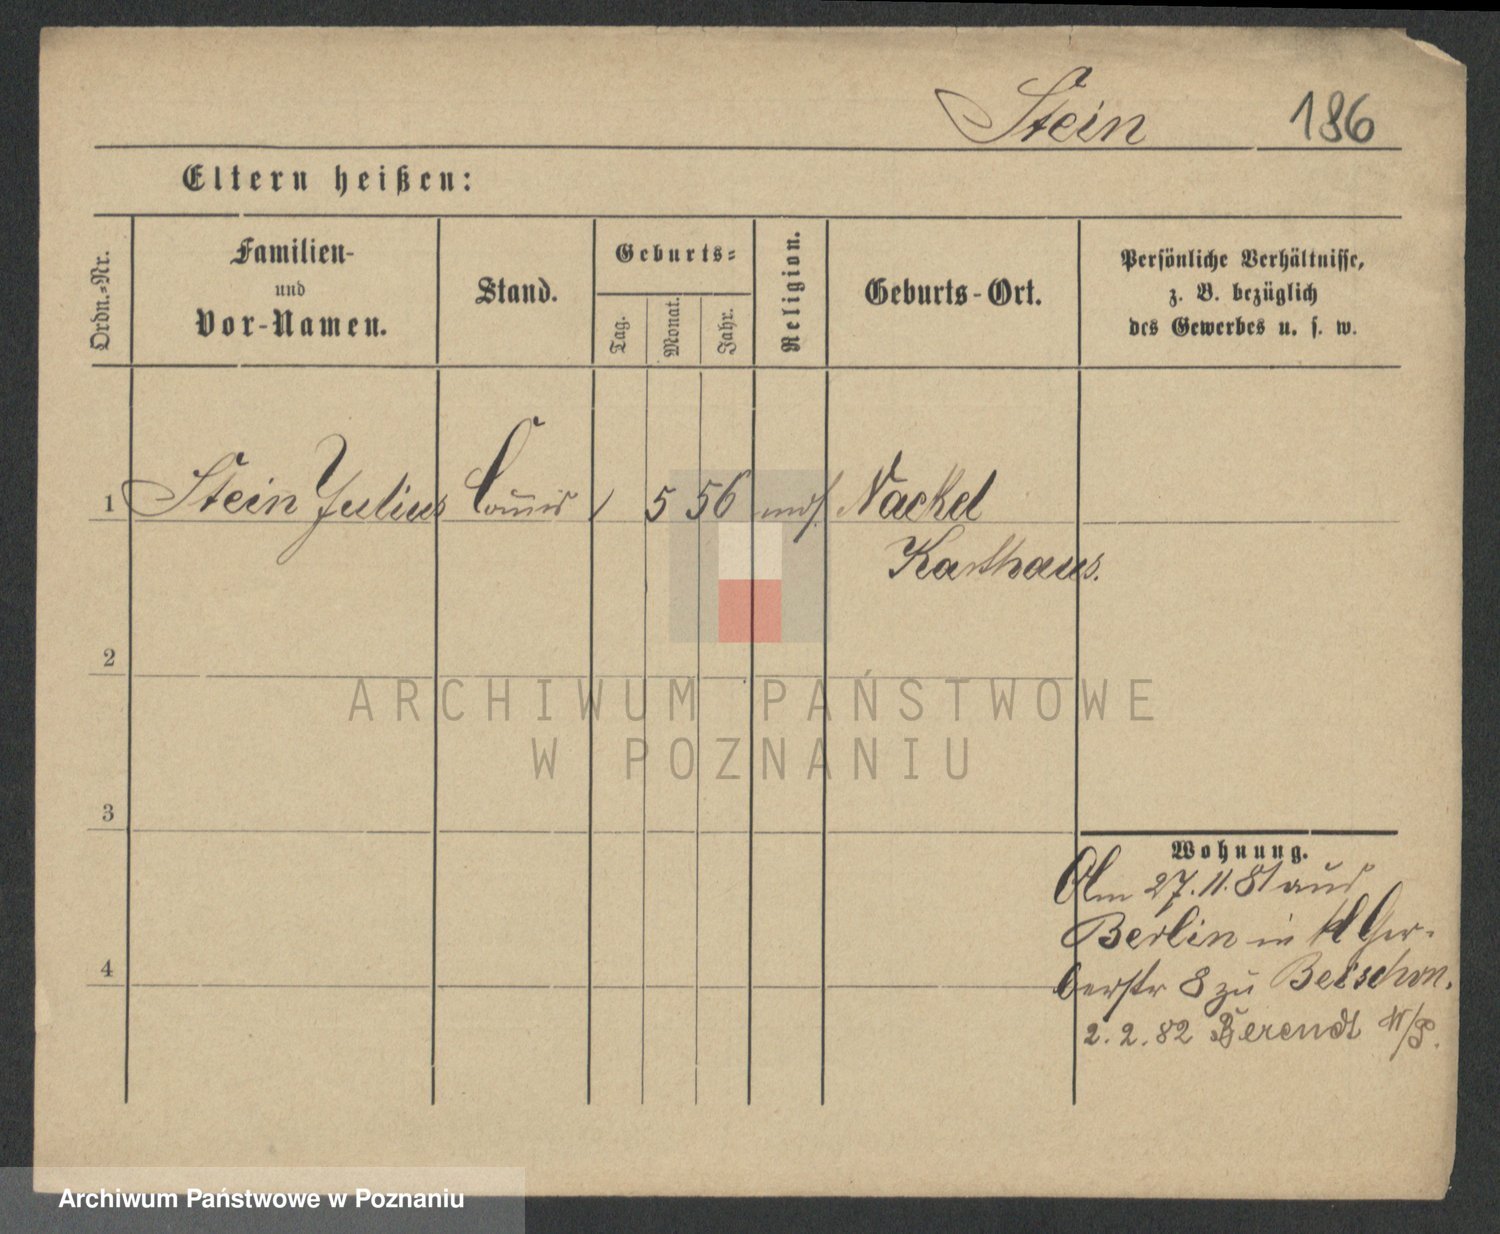 Stein 186
Eltern heißen:
Ordn.-Nr.
Familien-
und
Vor-Namen.
Stand.
Geburts-
Tag.
Monat.
Jahr.
Religion.
Geburts-Ort.
Persönliche Verhältnisse,
z. B. bezüglich
des Gewerbes u. s. w.
1 Stein Julius Com̅is 1 5 56 mos. Nackel
Karthaus.
2
3
4
Wohnung.
Am 27. 11. 81 aus
Berlin in Kl Ger-
berstr 8 zu
2. 2. 82 Berendt
ARCHIWUM PAŃSTWOWE
W POZNANIU
Archiwum Państwowe w Poznaniu